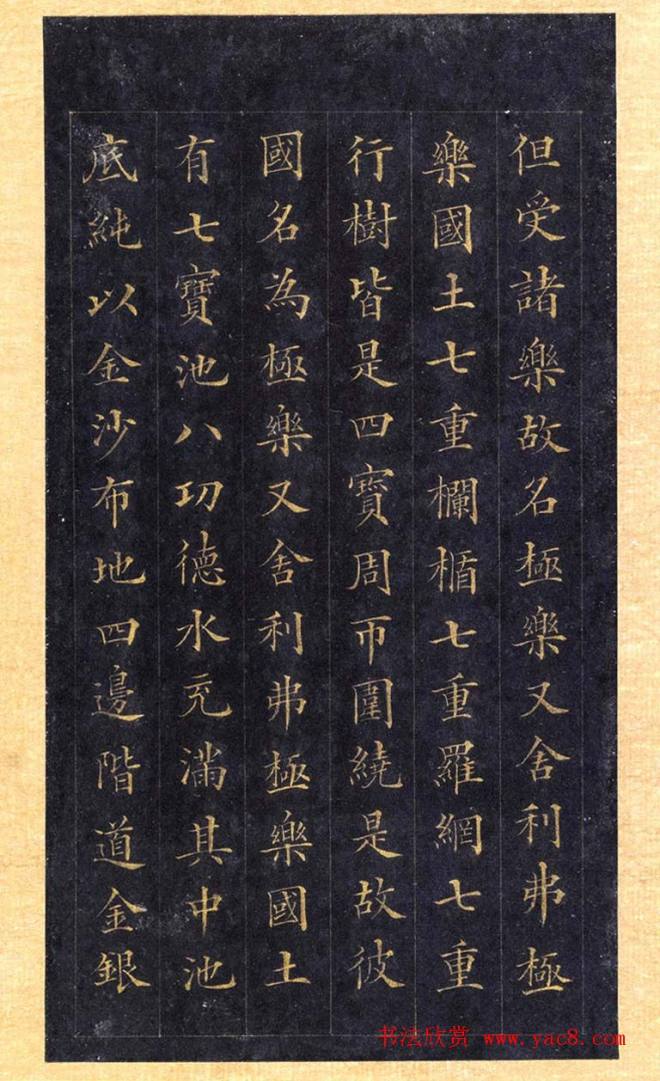 但受諸樂故名極樂又舍利弗極
樂國土七重欄楯七重羅網七重
行樹皆是四寶周帀圍繞是故彼
國名為極樂又舍利弗極樂國土
有七寶池八功德水充滿其中池
底純以金沙布地四邊階道金銀
书法欣赏 www.yac8.com